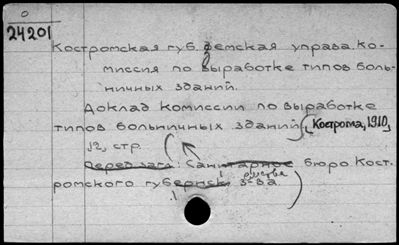 0
24201
Костромская губ. земская управа. Ко-
миссия по выработке типов боль-
ничных зданий.
Доклад комиссии по выработке
типов больничных зданий (Кострома, 1910,
12, стр.
Перед загл: Санитарное бюро Кост-
ромского губернск. з-ва.